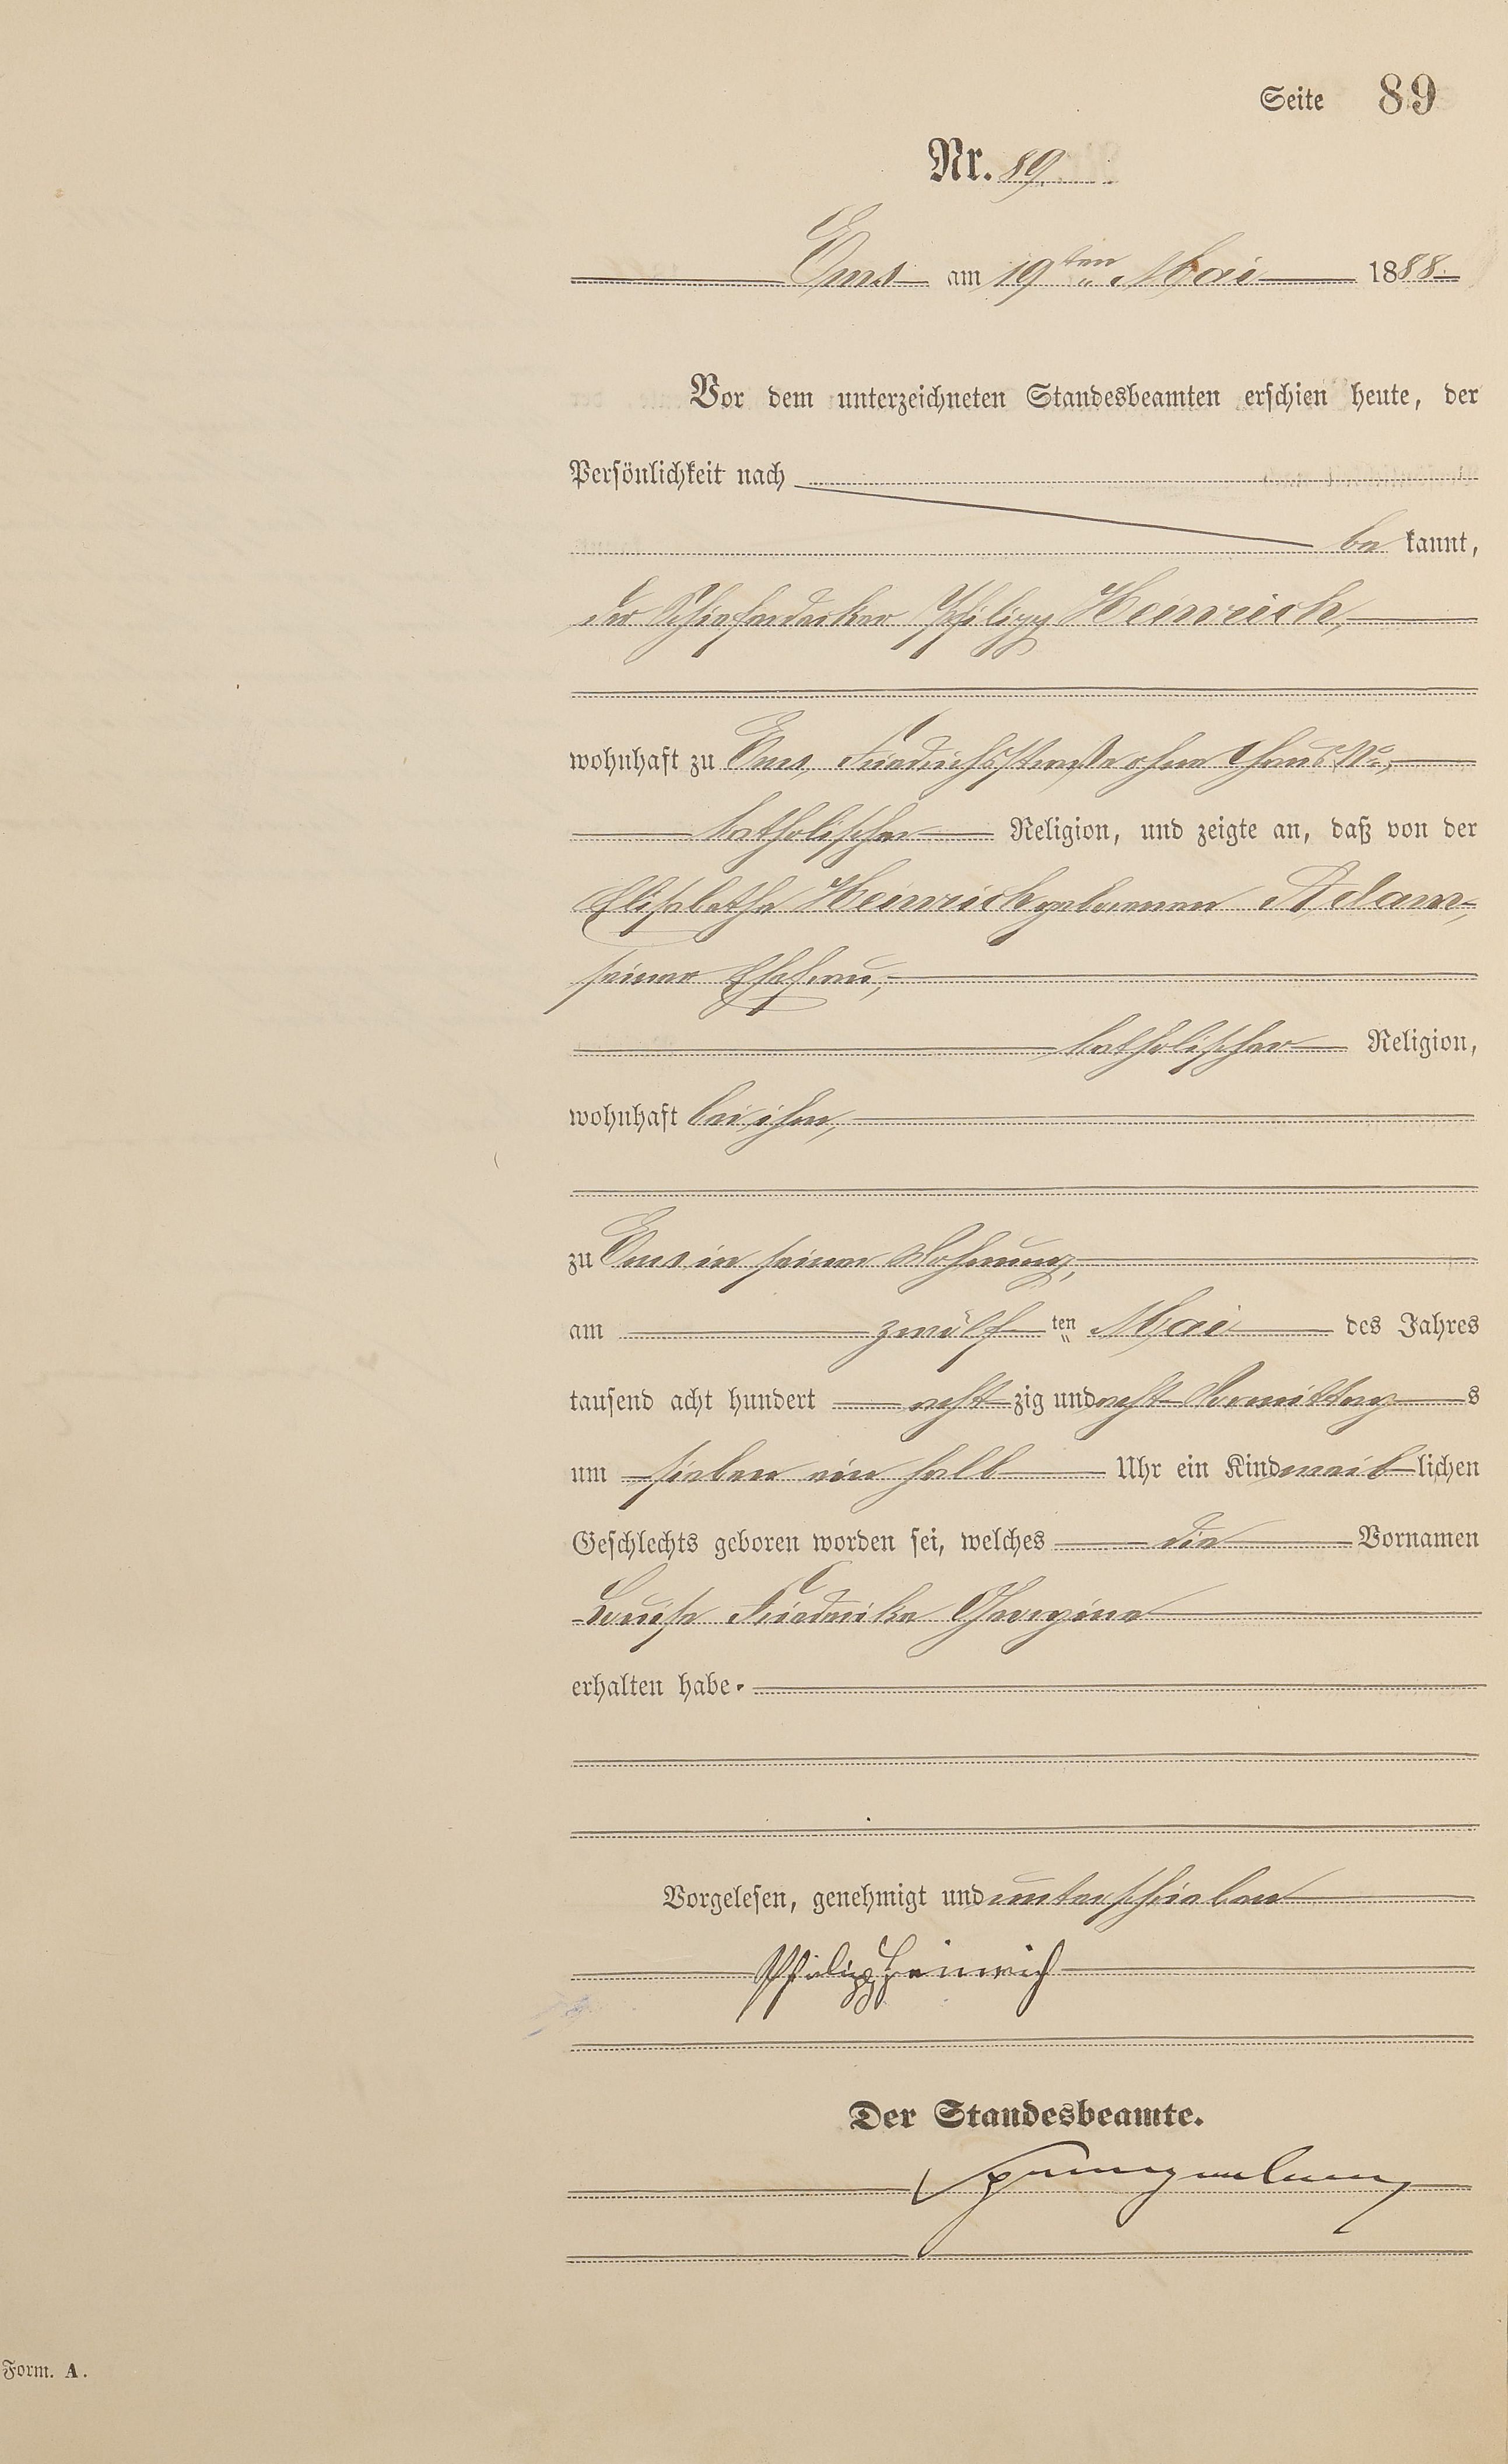 Seite 89
Nr. 89.
Ems am 19ten Mai 1888
Vor dem unterzeichneten Standesbeamten erschien heute, der
Persönlichkeit nach
be kannt,
der Schieferdecker Philipp Heinrich,
wohnhaft zu Ems, Friedrichsstraße ohne Haus No,
katholischer Religion, und zeigte an, daß von der
Elisabetha Heinrich geborenen Adam,
seiner Ehefrau,
katholischer Religion,
wohnhaft bei ihm,
zu Ems in seiner Wohnung,
am zwölf ten Mai des Jahres
tausend acht hundert acht zig und acht Vormittag s
um sieben ein halb Uhr ein Kind weib lichen
Geschlechts geboren worden sei, welches die Vornamen
Luise Friederike Georgine
erhalten habe.
Vorgelesen, genehmigt und unterschrieben
Philipp Heinrich
Der Standesbeamte.
Form. A.